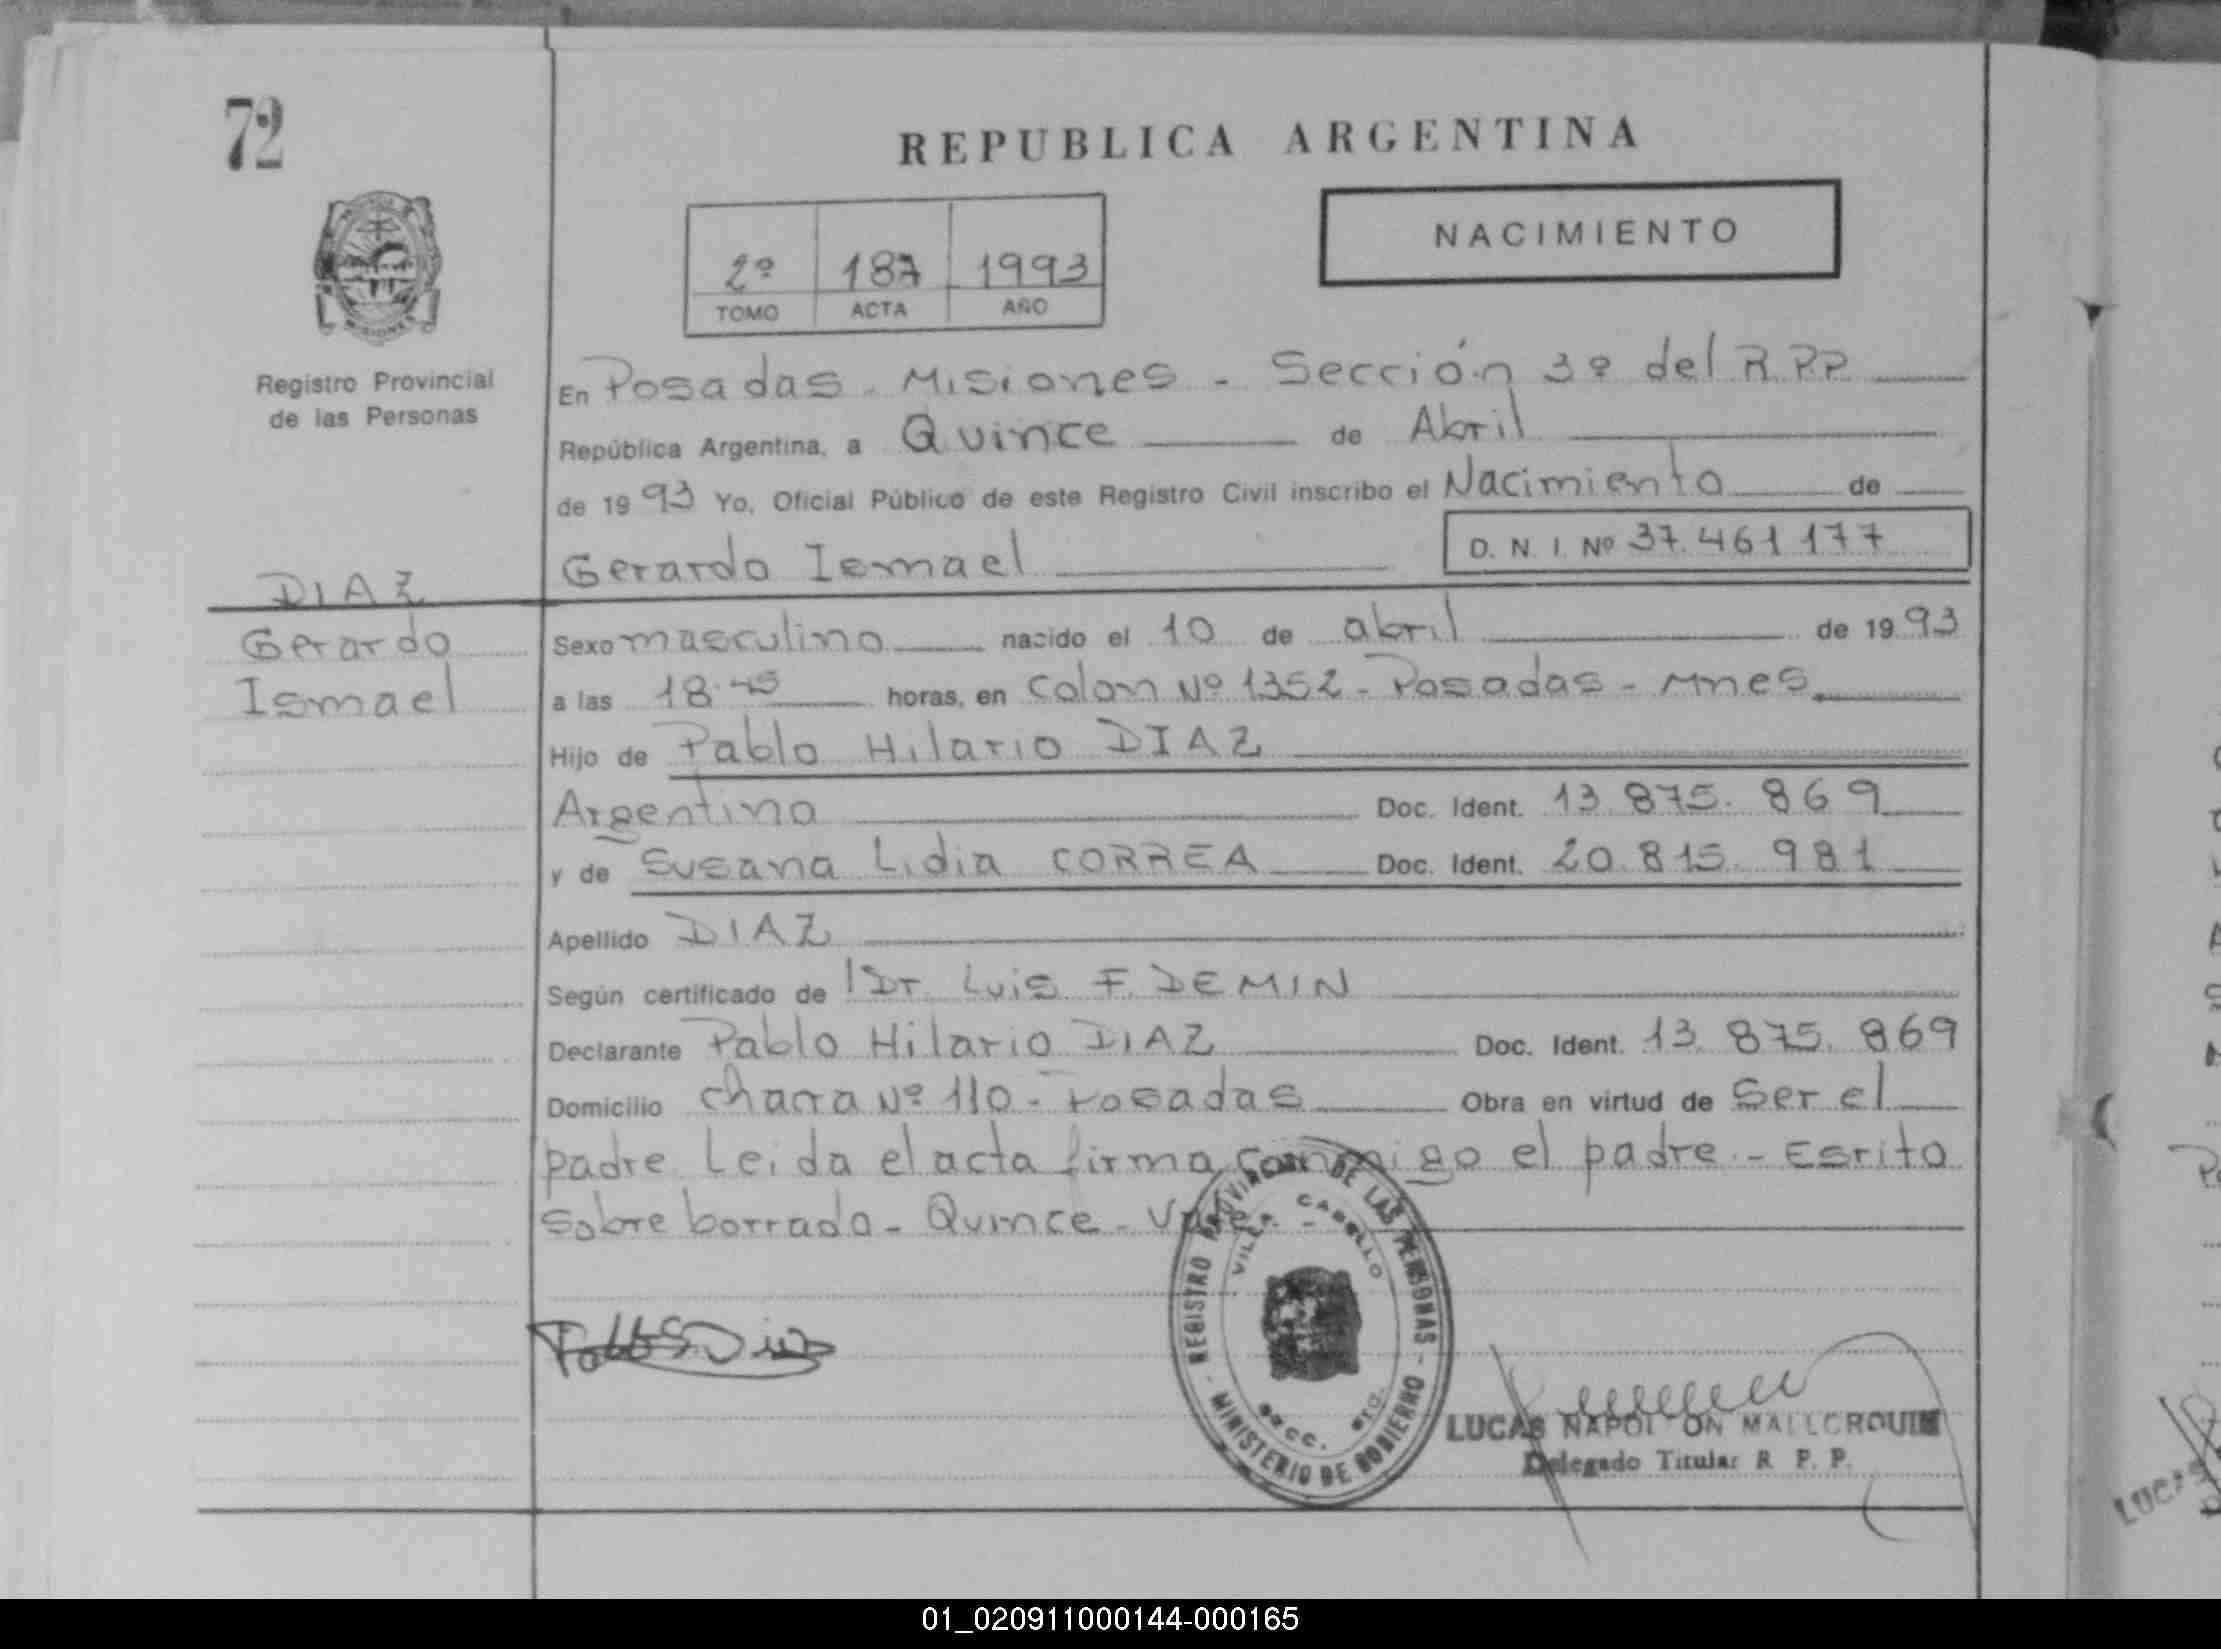 72
REPUBLICA ARGENTINA
NACIMIENTO
2º 187 1993
TOMO ACTA AÑO
Registro Provincial
de las Personas
En Posadas - Misiones - Sección 3º del R.P.P.
República Argentina, a Quince de Abril
de 1993 Yo, Oficial Público de este Registro Civil inscribo el Nacimiento de
Gerardo Ismael D. N. I. Nº 37.461.177
DIAZ
Gerardo
Ismael
Sexo masculino nacido el 10 de abril de 1993
a las 18.45 horas, en Colon Nº 1352 - Posadas - Mnes
Hijo de Pablo Hilario DIAZ
Argentino Doc. Ident. 13.875.869
y de Susana Lidia CORREA Doc. Ident. 20.815.981
Apellido DIAZ
Según certificado de Dr. Luis F. DEMIN
Declarante Pablo Hilario DIAZ Doc. Ident. 13.875.869
Domicilio Chacra Nº 110 - Posadas Obra en virtud de Ser el
padre. Leida el acta firma conmigo el padre - Esrito
Sobre borrado - Quince - Vale -
REGISTRO PROVINCIAL DE LAS PERSONAS - MINISTERIO DE GOBIERNO -
VILLA CABELLO
LUCAS NAPOLEON MALLORQUIN
Delegado Titular R. P. P.
LUCAS
01_020911000144-000165